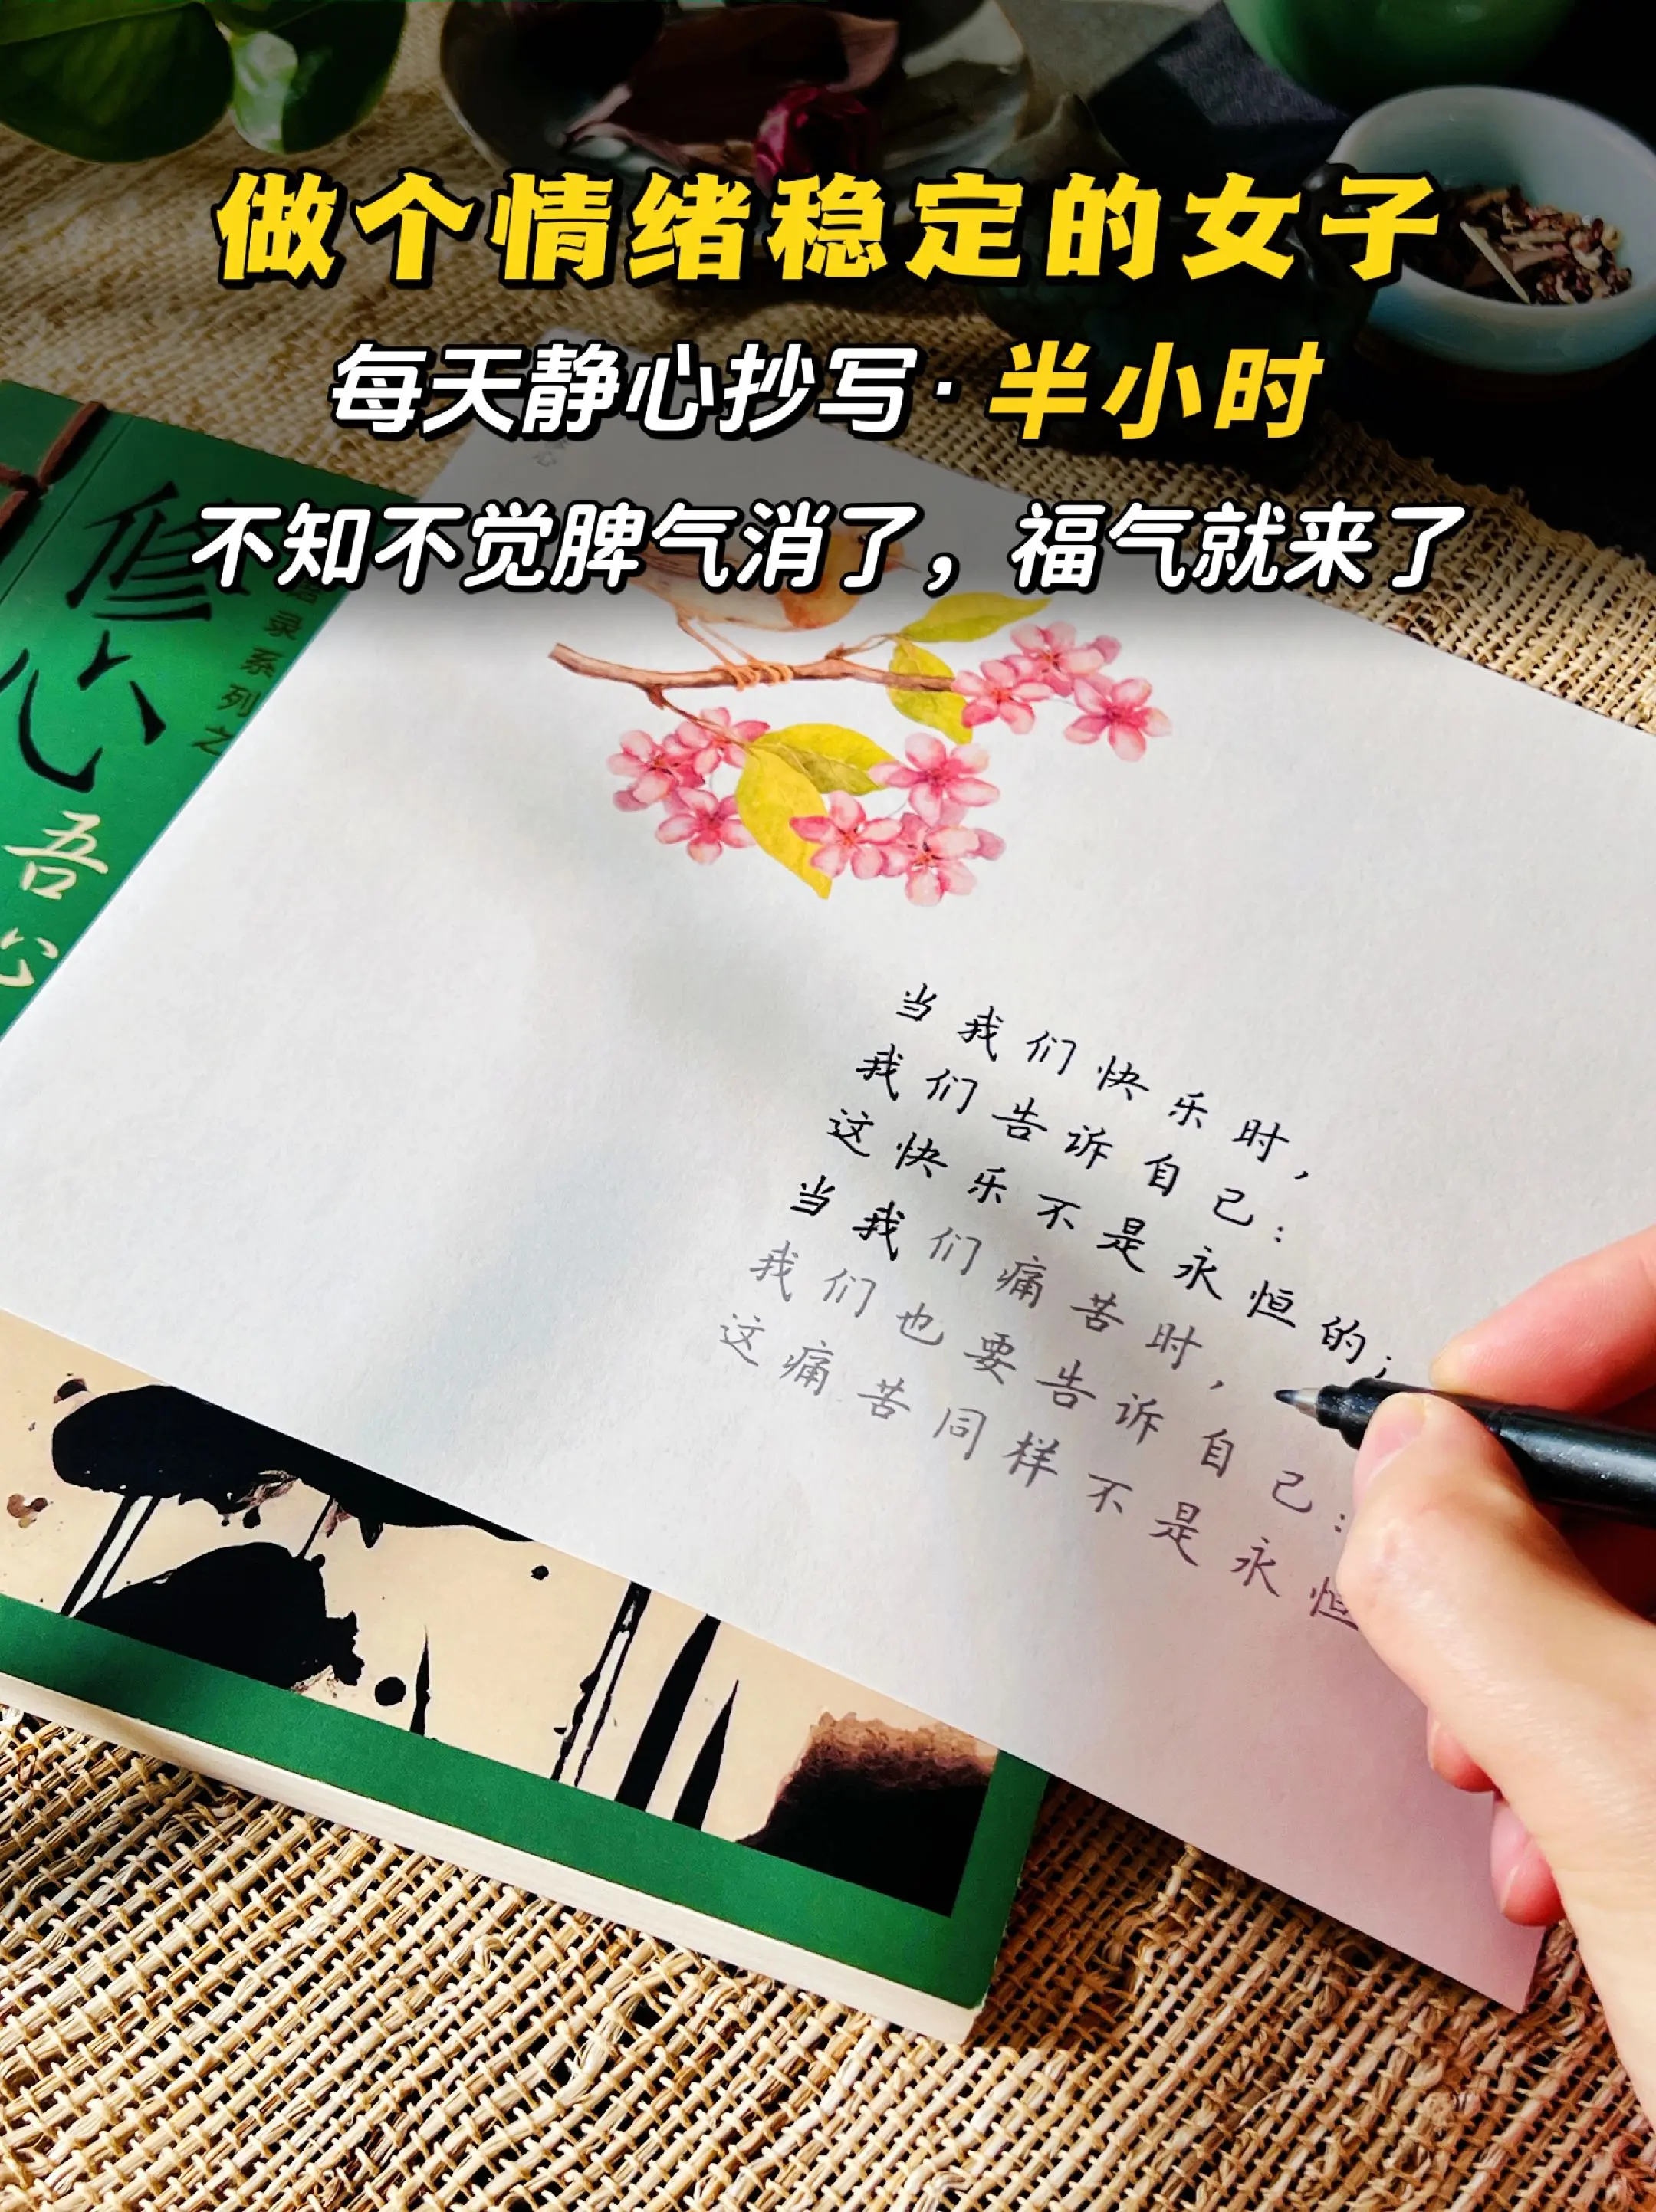 做个情绪稳定的女子
每天静心抄写·半小时
不知不觉脾气消了，福气就来了
修心
录系列之
吾心
当我们快乐时，
我们告诉自己：
这快乐不是永恒的；
当我们痛苦时，
我们也要告诉自己：
这痛苦同样不是永恒